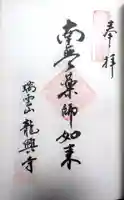 奉拝
南無薬師如来
瑞雲山龍興寺